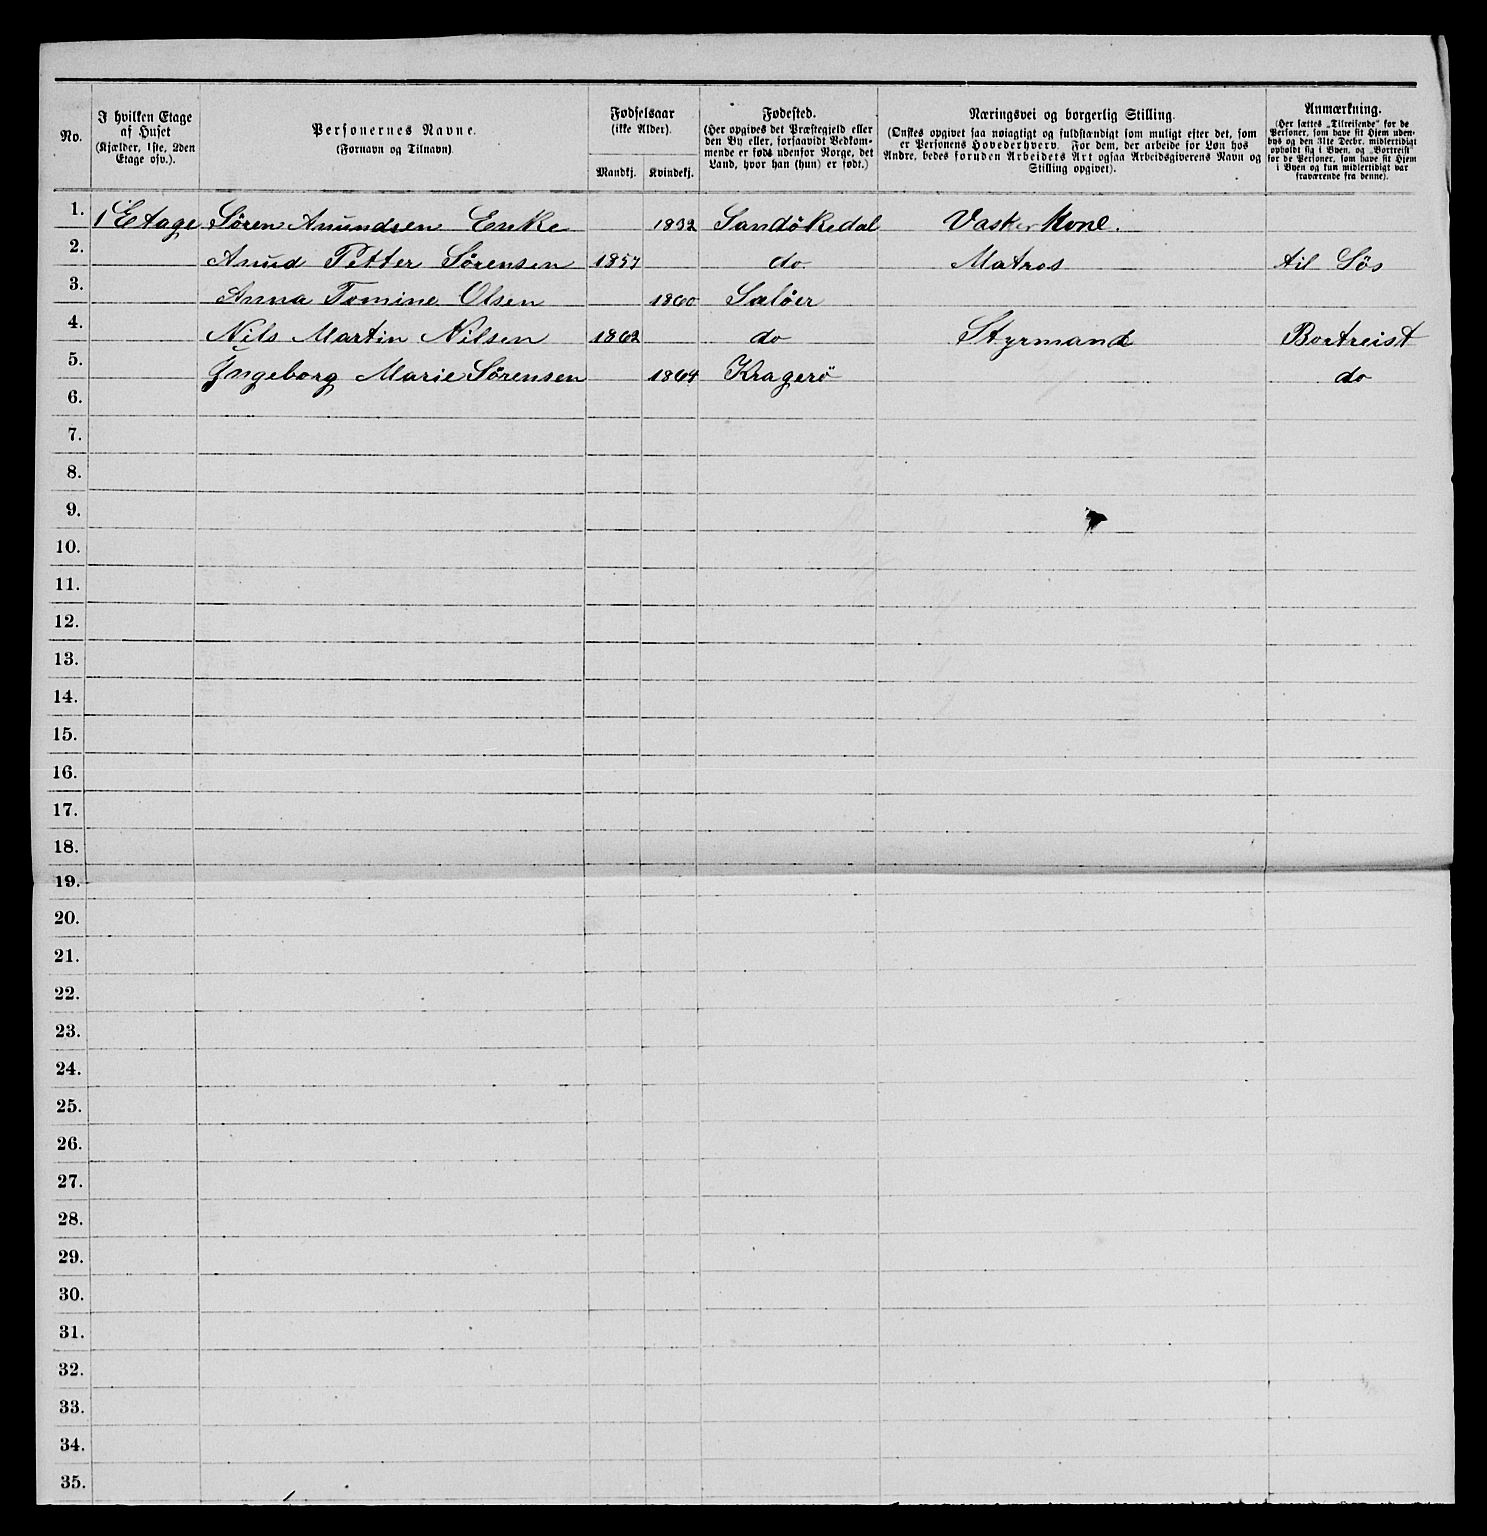 No.
I hvilken Etage
af Huset
(Kjælder, 1ste, 2den
Etage osv.).
Personernes Navne.
(Fornavn og Tilnavn)
Fødselsaar
(ikke Alder).
Mandkj. Kvindekj.
Fødested.
(Her opgives det Præstegjeld eller
den By eller, forsaavidt Vedkom-
mende er født udenfor Norge, det
Land, hvor han (hun) er født.)
Næringsvei og borgerlig Stilling.
(Ønskes opgivet saa nøiagtigt og fuldstændigt som muligt efter det, som
er Personens Hovederhverv. For dem, der arbeide for Løn hos
Andre, bedes foruden Arbeidets Art ogsaa Arbeidsgiverens Navn og
Stilling opgivet).
Anmærkning.
(Her sættes „Tilreisende“ for de
Personer, som have sit Hjem uden-
bys og den 31te Decbr. midlertidigt
opholdt sig i Byen, og „Bortreist“
for de Personer, som have sit Hjem
i Byen og kun midlertidigt var
fraværende fra denne).
1. 1 Etage Søren Anundsen Enke 1832 Sandökedal Vasker Kone.
2. Anud Petter Sørensen 1857 do Matros til Sös
3. Anna Tomine Olsen 1860 Salöer
4. Nils Martin Nilsen 1862 do Styrmand Bortreist
5. Yngeborg Marie Sørensen 1864 Kragerö do
6.
7.
8.
9.
10.
11.
12.
13.
14.
15.
16.
17.
18.
19.
20.
21.
22.
23.
24.
25.
26.
27.
28.
29.
30.
31.
32.
33.
34.
35.